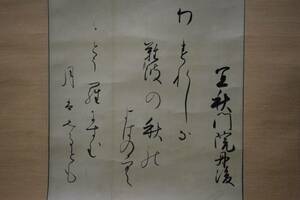 宜秋門院丹後
わすれしな
難波の秋の
よはの空
ことう羅にすむ
月はみるとも